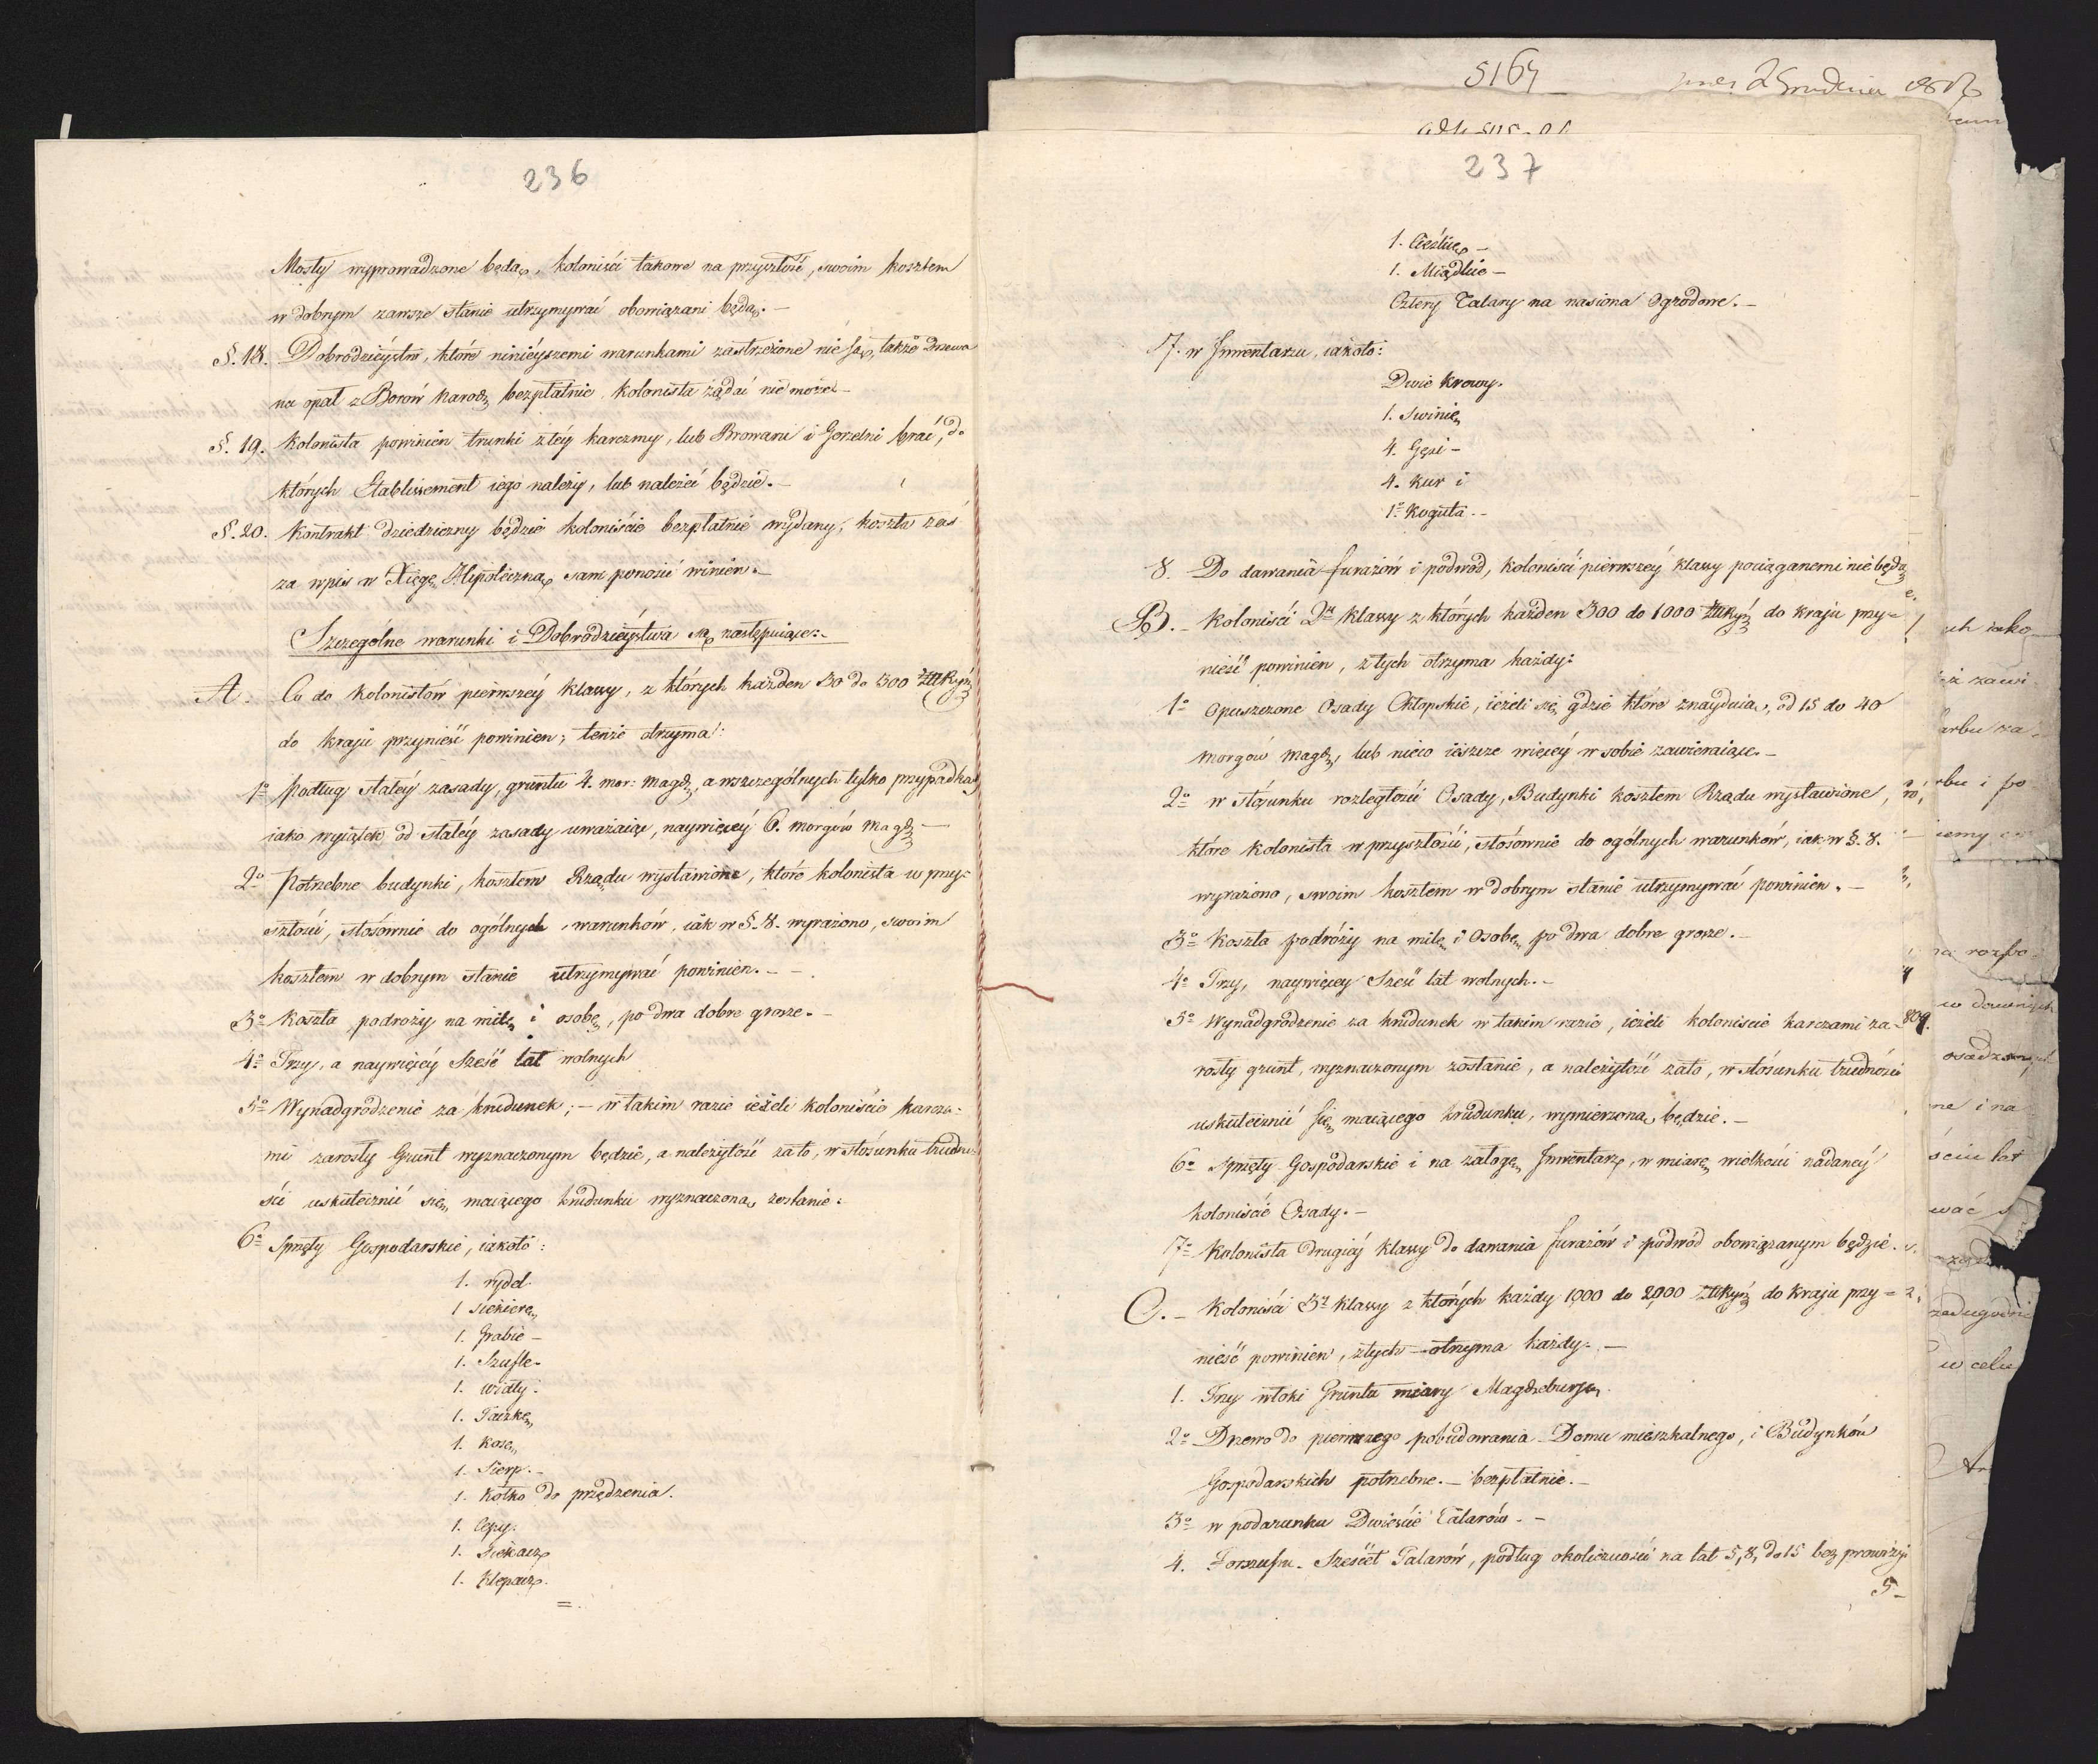 236
Mosty wyprowadzone będą, koloniści takowe na przyszłość, swoim kosztem
w dobrym zawsze stanie utrzymywać obowiązani będą. –
§. 18. Dobrodzieystw, które ninieyszemi warunkami zastrzeżone nie są, także Drzewa
na opał z Borów Narod. bezpłatnie, kolonista żądać nie może. –
§. 19. Kolonista powinien trunki z tey karczmy, lub Browaru i Gorzelni brać, do
których Etablissement iego należy, lub należeć będzie. –
§. 20. Kontrakt dziedziczny będzie koloniście bezpłatnie wydany, koszta zaś
za wpis w Xięgę Hypoteczną sam ponosić winien. –
Szczególne warunki i Dobrodzieystwa są następuiące: –
A. Co do kolonistów pierwszey klassy, z których każden 50 do 300
do kraju przynieść powinien; tenże otrzyma:
1o Podług stałey zasady, gruntu 4. mor: magd., a w szczególnych tylko przypadkach
iako wyiątek od stałey zasady uważaiąc, naywięcey 6. morgów magd. –
2o Potrzebne budynki, kosztem Rządu wystawione, które kolonista w przy=
szłości, stósownie do ogólnych warunków, iak w §. 8. wyrażono, swoim
kosztem w dobrym stanie utrzymywać powinien. – –
3o Koszta podroży na milę i osobę, po dwa dobre grosze. –
4o Trzy, a naywięcey Sześć lat wolnych
5o Wynadgrodzenie za krudunek; – w takim razie ieżeli koloniście karcza=
mi zarosły Grunt wyznaczonym będzie, a należytość za to, w stósunku trudno=
ści uskutecznić się maiącego krudunku wyznaczoną zostanie:
6o Sprzęty Gospodarskie, iakoto:
1. rydel.
1 siekierę
1. Grabie –
1. Szufle –
1. widły.
1. Taczkę
1. kosę
1. Sierp. –
1. Kołko do przędzenia.
1. Cepy.
1. Siekacz
1. Klepacz.
=.
5164
2 Grudnia
237
1.
1. Miądlie –
Cztery Talary na nasiona Ogrodowe. –
7. w Inwentarzu, iakoto:
Dwie krowy.
1. Swinię
4. Gęsi –
4. Kur i
1o Koguta. –
8. Do dawania furażów i podwod, koloniści pierwszey klassy pociąganemi nie będą
B. – Koloniści 2ey klassy z których każden 300 do 1000 do kraju przy=
nieść powinien, z tych otrzyma każdy:
1o Opuszczone Osady Chłopskie, ieżeli się gdzie które znayduią, od 15 do 40
morgów magd., lub nieco ieszcze więcey w sobie zawieraiące. –
2o w stósunku rozległości Osady, Budynki kosztem Rządu wystawione,
które kolonista w przyszłości, stósownie do ogólnych warunków, iak w §. 8.
wyrażono, swoim kosztem w dobrym stanie utrzymywać powinien. –
3o Koszta podróży na milę i Osobę, po dwa dobre grosze. –
4o Trzy, naywięcey Sześć lat wolnych. –
5o Wynadgrodzenie za krudunek w takim razie, ieżeli koloniście karczami za=
rosły grunt, wyznaczonym zostanie, a należytość za to, w stósunku trudności
uskutecznić się maiącego krudunku, wymierzoną będzie. –
6o Sprzęty Gospodarskie i na załogę Inwentarz, w miarę wielkości nadaney
koloniście Osady. –
7o Kolonista drugiey klassy do dawania furażów i podwod obowiązanym będzie.
C. – Koloniści 3ey klassy z których każdy 1000 do 2000 do kraju przy=
nieść powinien, z tych – otrzyma każdy. –
1. Trzy włoki Gruntu miary Magdeburs.
2o Drzewo do pierwszego pobudowania Domu mieszkalnego, i Budynków
Gospodarskich potrzebne. – bezpłatnie. –
3o w podarunku Dwieście Talarów. –
4. Forszusu Sześćet Talarów, podług okoliczności na lat 5, 8, do 15 bez prowizyi
5 –